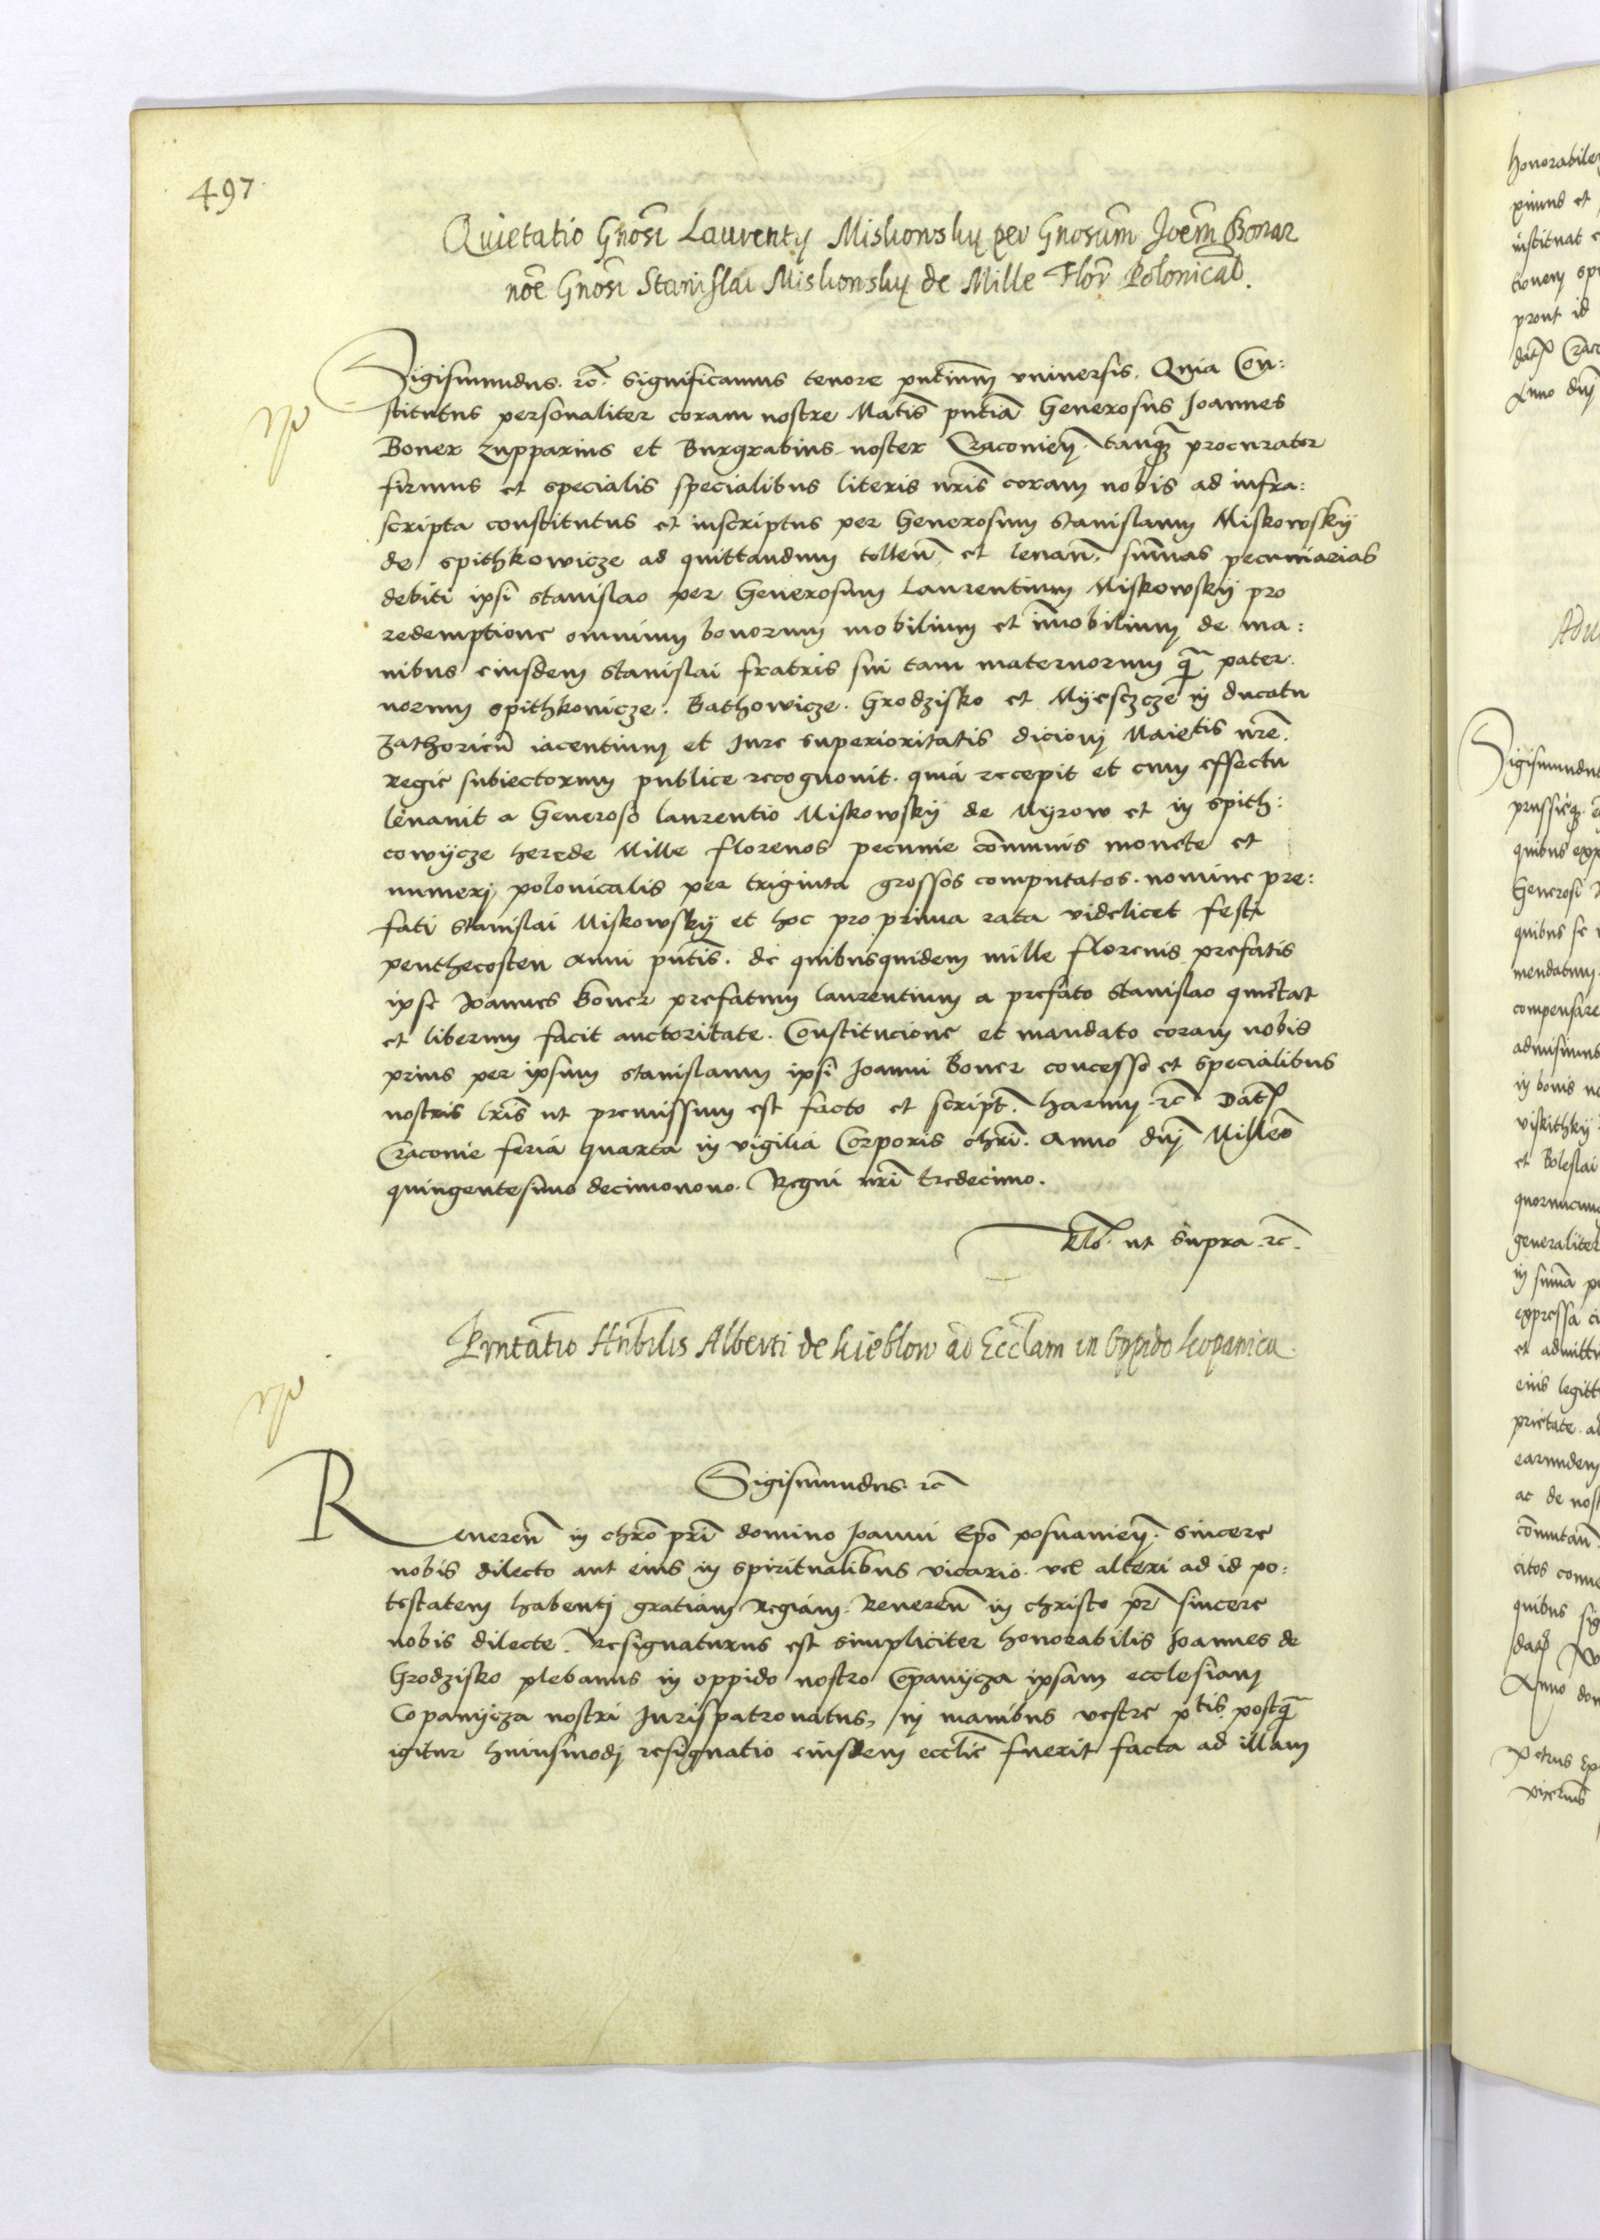 497
Quietatio Gnosi Laurenty Miskowsky per Gnosum Joem Bonar
noe Gnosi Stanislai Miskowsky de Mille Flor Polonical.
Sigismundus. rc. significamus tenore pntium vniuersis. Quia Con:
stitutus personaliter coram nostre Matis pntia Generosus Joannes
Boner zupparius et Burgrabius noster Cracouien. tanq procurator
firmus et specialis specialibus literis nris coram nobis ad infra:
scripta constitutus et inscriptus per Generosum Stanislaum Miskowskÿ
de Spithkowicze ad quittandum tollen, et leuan, summas pecuniarias
debiti ipsi Stanislao per Generosum Laurentium Miskowskÿ pro
redemptione omnium bonorum mobilium et immobilium de ma:
nibus eiusdem Stanislai fratris sui tam maternorum q pater
norum Spithkowicze. Bathowicze. Grodzisko et Mÿesczcze in ducatu
Zathorien iacentium et Jure superioritatis dicioni Maietis nre.
regie subiectorum publice recognouit. quia recepit et cum effectu
leuauit a Generoso Laurentio Miskowskÿ de Mÿrow et in Spith:
cowÿcze herede Mille florenos pecunie communis monete et
numeri polonicalis per triginta grossos computatos. nomine pre:
fati Stanislai Miskowskÿ et hoc pro prima rata videlicet festi
penthecosten anni pntis. de quibusquidem mille florenis prefatis
ipse Joannes Boner prefatum Laurentium a prefato Stanislao quietat
et liberum facit auctoritate. Constitucione et mandato coram nobis
prius per ipsum Stanislaum ipsi Joanni Boner concesso et specialibus
nostris lris ut premissum est facto et script. harum rc Dat
Cracouie feria quarta in vigilia Corporis chri. Anno dni Milleo
quingentesimo decimonono. Regni nri tredecimo.
Rlo. ut supra. rc.
Pntatio Hnbilis Alberti de Kieblow ad Ecclam in Oppido Kopanica.
Sigismundus. rc
Reueren in chro pri domino Joanni Epo posnanien. sincere
nobis dilecto aut eius in spiritualibus vicario. vel alteri ad id po:
testatem habenti gratiam Regiam. Reueren in christo pr sincere
nobis dilecte. Resignaturus est simpliciter honorabilis Joannes de
Grodzisko plebanus in oppido nostro Copanÿcza ipsam ecclesiam
Copanÿcza nostri Jurispatronatus, in manibus vestre ptis. postq
igitur huiusmodi resignatio eiusdem ecclie fuerit facta ad illam